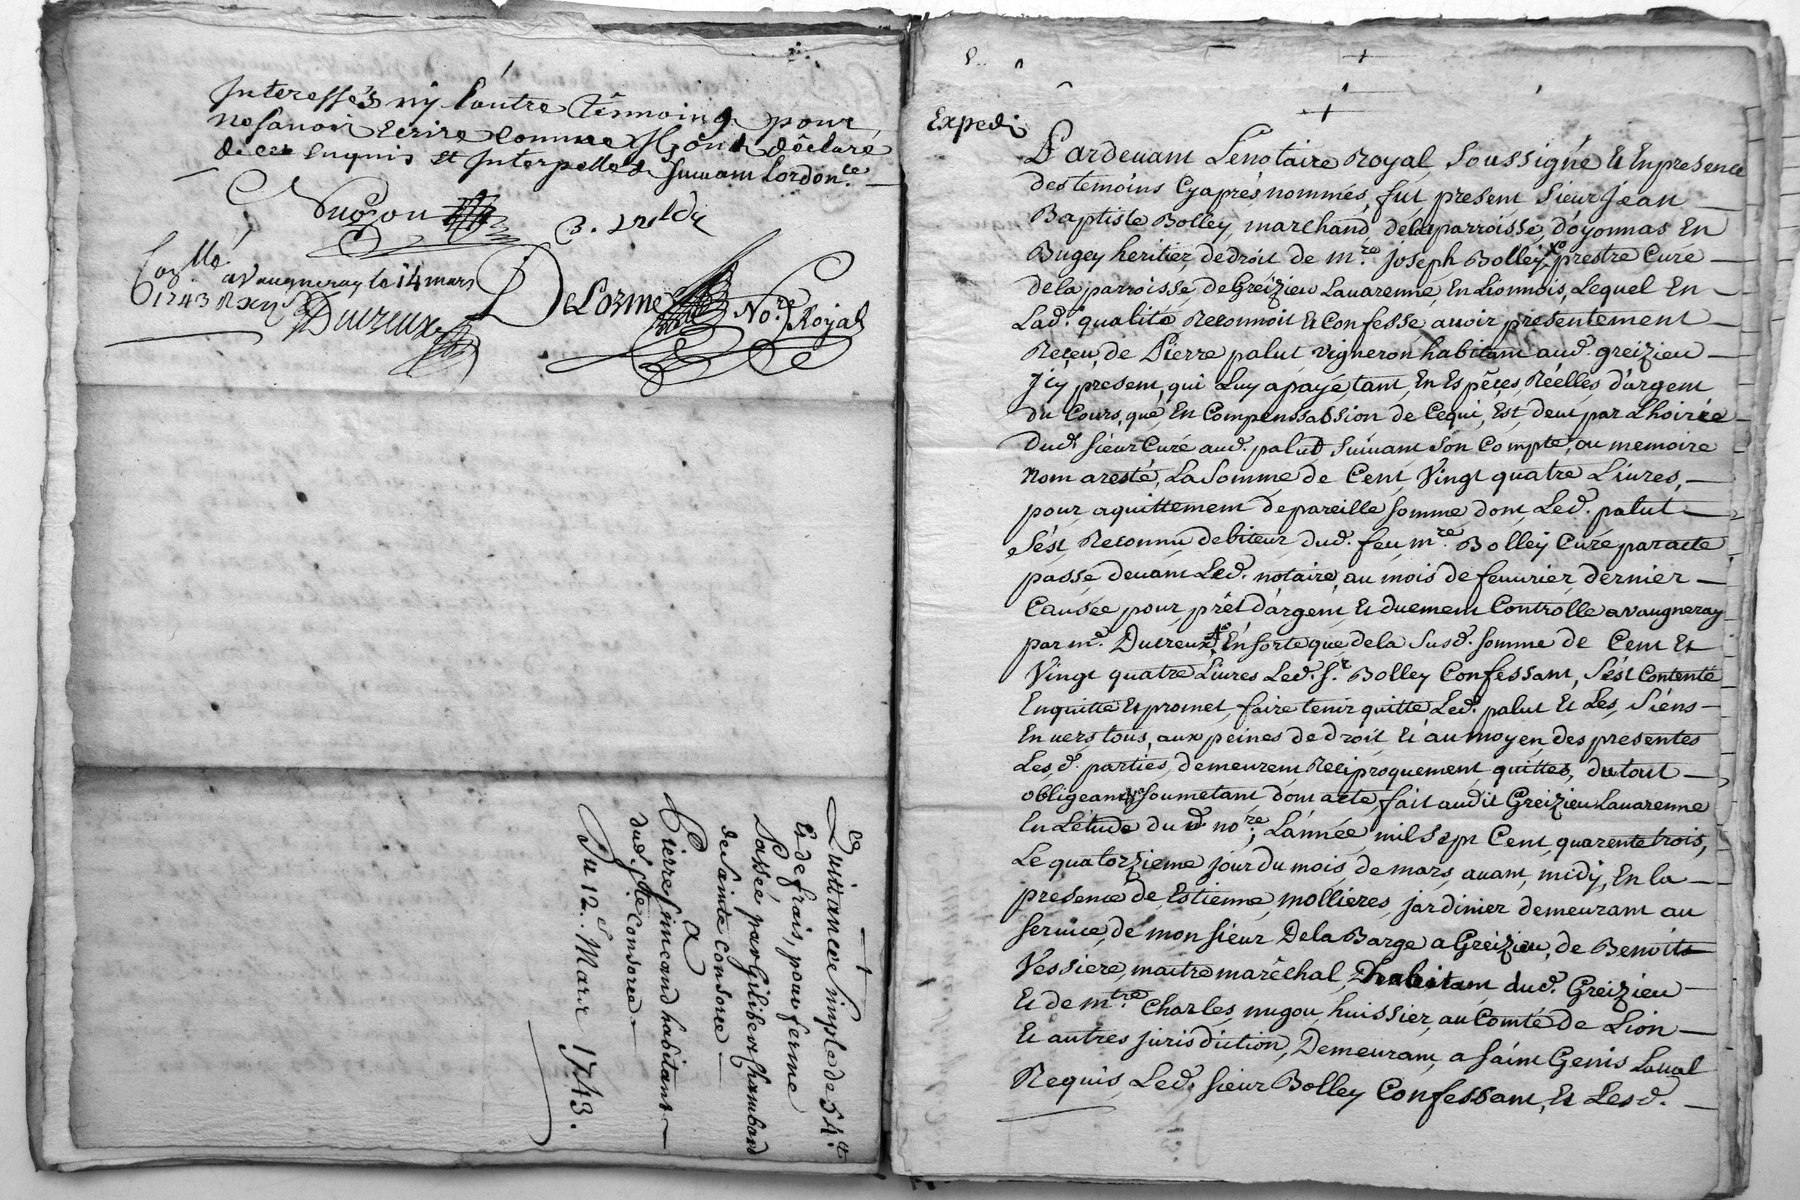 Interessés ny l'autre témoing pour
ne savoir Ecrire comme Ils ont déclaré
de ce enquis et Interpellés suivant Lordon.ce
Nugou
Con.llé a vaugneray le 14 mars
1743 Rx
Ducreux
DeLorme No.re Royal
Quittance simple de 54.lt
Et de frais, pour ferme
Passée par Gilibert Chambard
de Sainte Consorce
a
Pierre Simeand habitant
dud. Ste Consorce.
Du 12.e Mars 1743.
Expedi
Pardevant Le notaire Royal Soussigné Et En presence
des temoins Cyaprés nommés, fut present Sieur Jean
Baptiste Bolley, marchand de la parroisse d'oyonnas En
Bugey heritier de droit de m.re Joseph Bolley prestre Curé
de la parroisse de Greizieu Lavarenne, En Lionnois, Lequel En
Lad. qualité Reconnoit Et Confesse avoir presentement
Receu de Pierre palut vigneron habitant aud. greizieu
Icy present, qui Luy a payé tant En Espéces Réelles d'argent
du Cours, que En Compenssassion de Cequi Est deut par Lhoirée
Dud. sieur Curé aud. palud suivant son Compte, ou memoire
Non aresté, La Somme de Cent Vingt quatre Livres,
pour aquittement de pareille somme dont Led. palut
s'ést Reconnu debiteur dud. feu m.re Bolley Curé par acte
passé devant Led. notaire, au mois de fevvrier dernier
Causée pour prét d'argent Et duement Controllé a vaugneray
par m.e Ducreux, En sorte que de la Susd. somme de Cent Et
Vingt quatre Livres Led. S.r Bolley Confessant, s'ést Contenté
En quitte Et promet faire tenir quitte Led. palut Et Les Siéns
En vers tous, aux peines de droit Et au moyen des presentes
Lesd. parties demeurent Reciproquement quittes, du tout
obligeant soumetant dont acte, fait audit Greizieu Lavarenne
En L'étude du d. no.re, L'année mil sept Cent quarente trois,
Le quatorzieme jour du mois de mars, avant, midy, En la
presence de Estienne mollieres jardinier demeurant au
service, de monsieur Dela Barge a Greizieu, de Benoits
Vessiere, maitre maréchal, habitant, dud. Greizieu
Et de m.tre Charles nugou huissier, au Comté de Lion
Et autres jurisdiction, Demeurant, a saint Genis Laval
Requis, Led. sieur Bolley Confessant, Et Lesd.